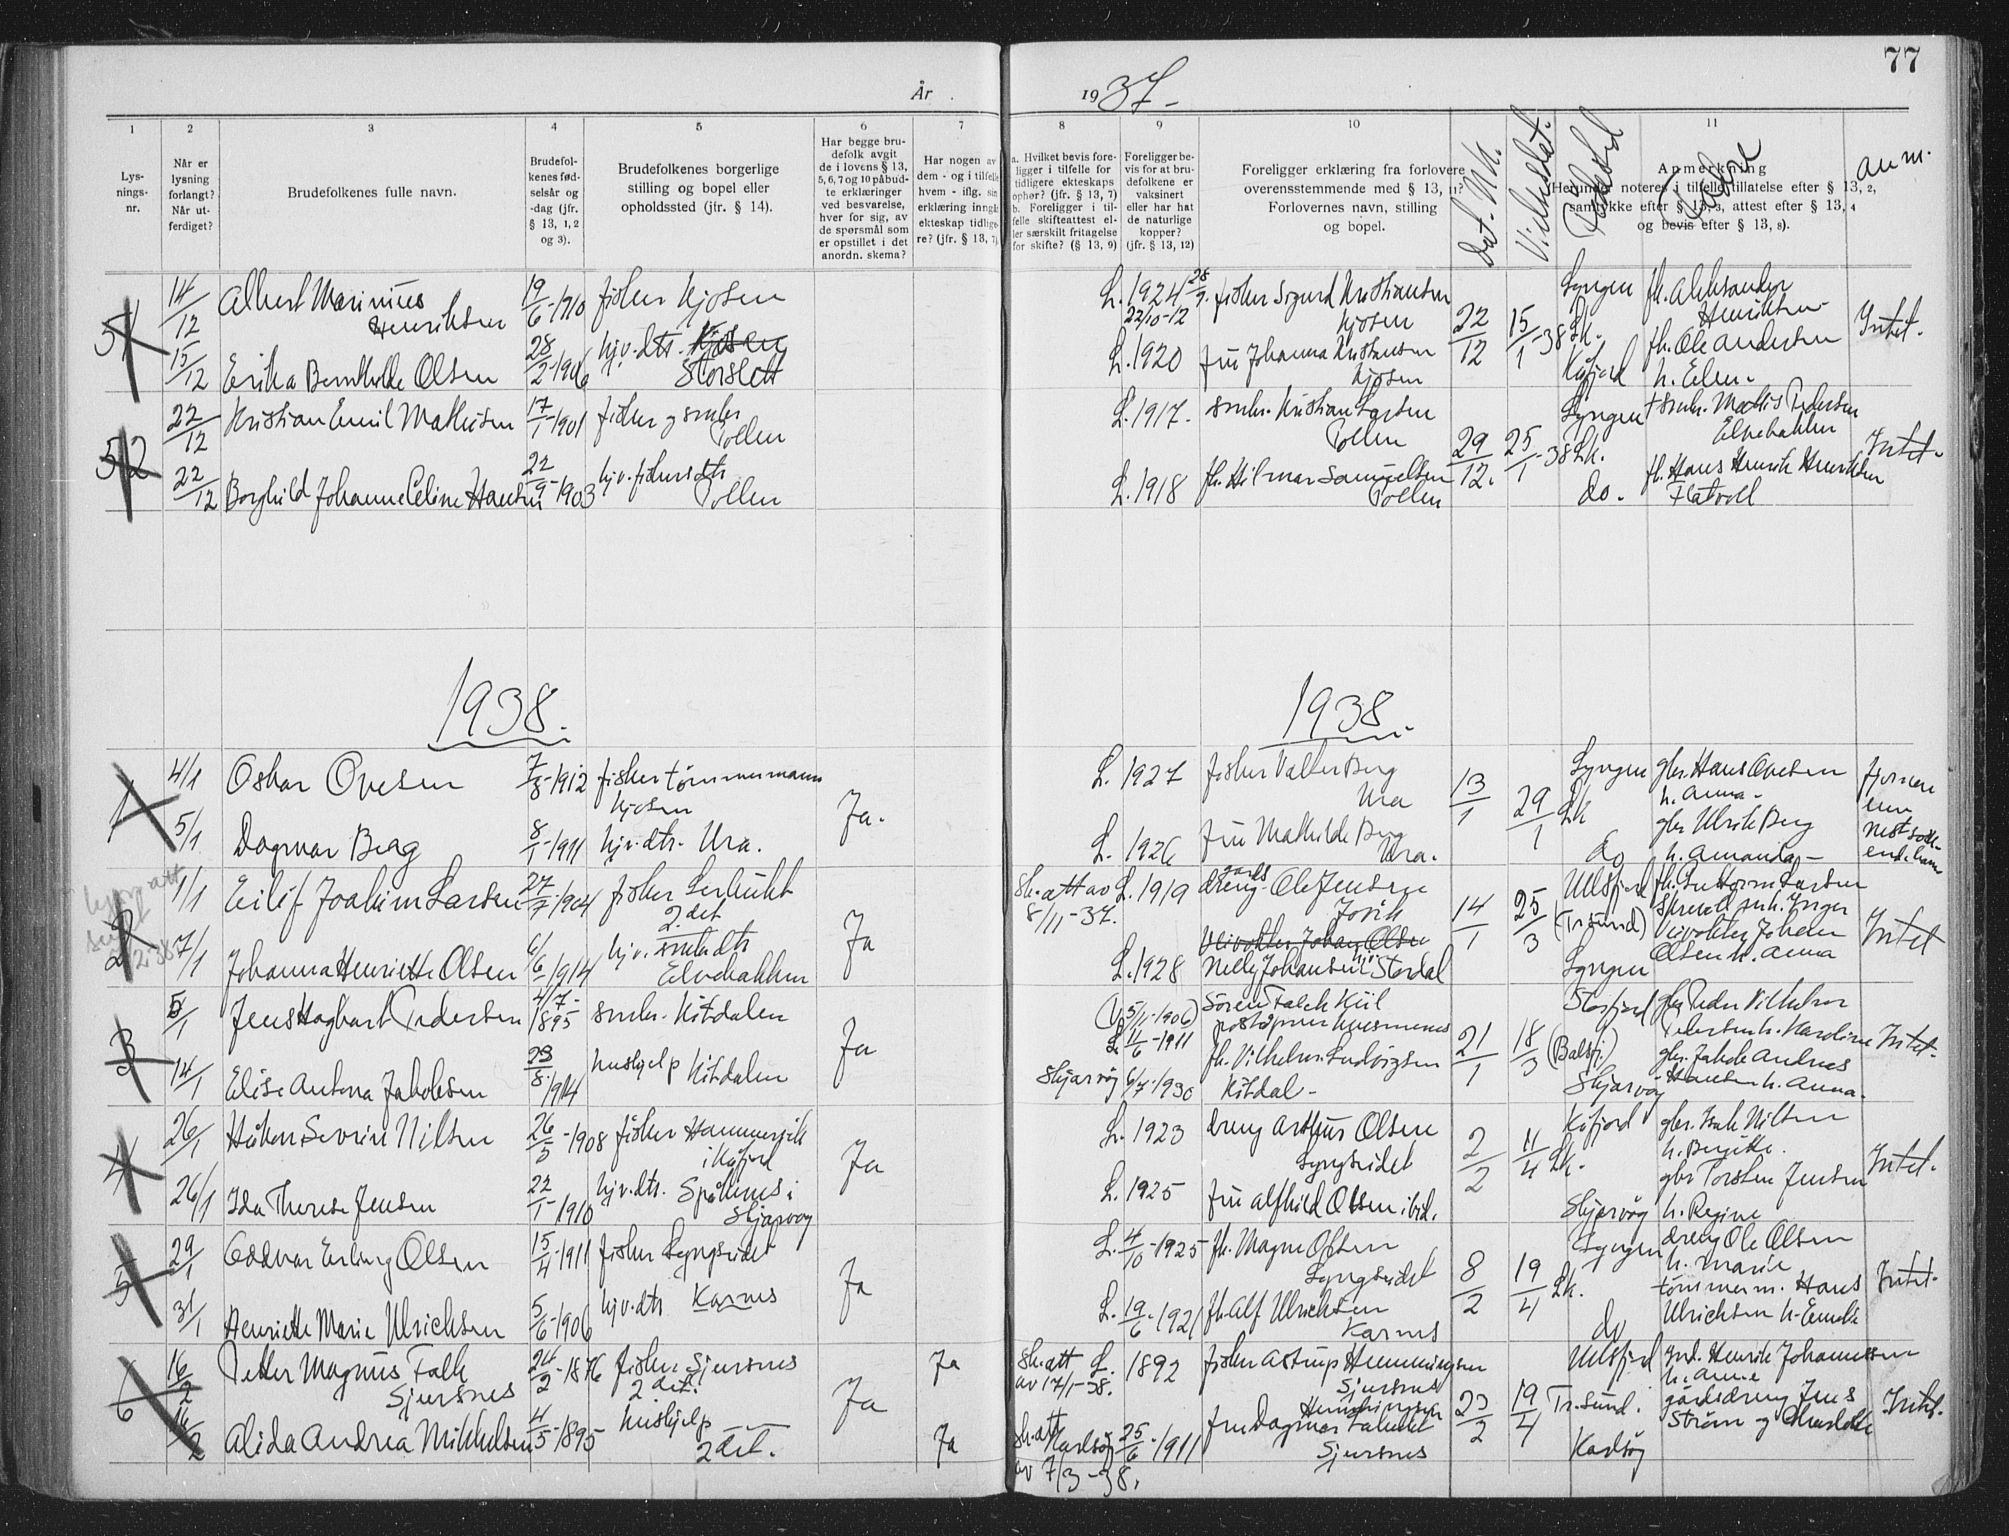 77
År 1937.
1
2
3
4
5
6
7
8
9
10
11
Lys-
nings-
nr.
Når er
lysning
forlangt?
Når ut-
ferdiget?
Brudefolkenes fulle navn.
Brudefol-
kenes fød-
selsår og
-dag (jfr.
§ 13, 1, 2
og 3).
Brudefolkenes borgerlige
stilling og bopel eller
opholdssted (jfr. § 14).
Har begge bru-
defolk avgit
de i lovens § 13,
5, 6, 7 og 10 påbud-
te erklæringer
ved besvarelse,
hver for sig, av
de spørsmål som
er opstillet i det
anordn. skema?
Har nogen av
dem - og i tilfelle
hvem - iflg. sin
erklæring inngått
ekteskap tidlige-
re? (jfr. § 13, 7).
a. Hvilket bevis fore-
ligger i tilfelle for
tidligere ekteskaps
ophør? (jfr. § 13, 7)
b. Foreligger i til-
felle skifteattest el-
ler særskilt fritagelse
for skifte? (§ 13, 9)
Foreligger be-
vis for at bru-
defolkene er
vaksinert
eller har hat
de naturlige
kopper?
(jfr. § 13, 12)
Foreligger erklæring fra forlovere
overensstemmende med § 13, 11?
Forlovernes navn, stilling
og bopel.
Dat. M.k.
Vielsesdat.
Fødested
Anmerkning
Herunder noteres i tilfelle tillatelse efter § 13, 2,
samtykke efter § 13, 3, attest efter § 13, 4
og bevis efter § 13, 8).
anm.
51
14/12 Albert Marinius Henriksen 19/6-1910 fisker Kjosen L. 1924 28/7. fisker Sigurd Kristiansen Kjosen 22/12 15/1-38 Lk. Lyngen fh. Aleksander Henriksen Intet.
22/10-12
15/12 Erika Berntholde Olsen 28/2-1906 hjv. dtr. Kjosen Storslett L. 1920 fru Johanna Kristiansen Kjosen Kåfjord fh. Ole Andersen h. Elen.
52
22/12 Kristian Emil Mathisen 17/1-1901 fisker og smbr. Pollen L. 1917. smbr. Kristian Larsen Pollen 29/12. 25/1-38 Lk. Lyngen smbr. Mathis Pedersen Elvebakken Intet.
22/12 Borghild Johanne Celine Hansen 22/9-1903 hjv. fiskersdtr. Pollen L. 1918 fh. Hilmar Samuelsen Pollen do. fh. Hans Henrik Henriksen Flatvoll
1938.
1938.
1
4/1 Oskar Ovesen 7/8-1912 fisker tømmermann Kjosen Ja. L. 1927 fisker Valter Berg Ura 13/1 29/1 Lk Lyngen gbr. Hans Ovesen h. Anna.
5/1 Dagmar Berg 8/1-1911 hjv. dtr. Ura. L. 1926 fru Mathilde Berg Ura. do gbr Ulrik Berg h. Amanda
2
1/1 Eilif Joakim Larsen 27/7-1904 fisker 2. det Ja sk. att av 8/11-37. L. 1919 gårdsdreng Ole Jensen Jovik 14/1 25/3 (Tr.sund) Ullsfjord Intet
7/1 Johanna Henriette Olsen 6/6/1914 hjv. smbr. dtr Elvebakken L. 1928 Veivokter Johan Olsen Nelly Johansen Stordal Lyngen Veivokter Johan Olsen h. Anna
3
5/1 Jens Hagbart Pedersen 4/7-1895 smbr. Kitdalen Ja (V 5/11-1906) L 11/6-1911 Søren Falck Kiil poståpner 21/1 18/3 (Balsfj.) Storfjord gbr Peder Vilhelm Pedersen h. Karoline Intet.
14/1 Elise Antona Jakobsen 23/8.1914 hushjelp Kitdalen Skjervøy 6/7-1930 fh. Vilhelm Ludvigsen Kitdal Skjervøy gbr. Jakob Andreas Hansen h. Anna.
4
26/1 Håkon Severin Nilsen 26/5-1908 fisker Hammervik i Kåfjord Ja L. 1923 dreng Arthur Olsen Lyngseidet 2/2 11/4 Lk. Kåfjord gbr. Isak Nilsen h. Birgitte. Intet.
26/1 Ida Therese Jensen 22/1-1910 hjv. dtr. Spåknes i Skjervøy L. 1925 fru Alfhild Olsen ibid. Skjervøy gbr Torsten Jensen h. Regine
5
29/1 Oddvar Erling Olsen 15/4-1911 fisker Lyngseidet Ja L. 4/10-1925 fh. Magne Olsen Lyngseidet 8/2 19/4 Lk. Lyngen dreng Ole Olsen h. Marie Intet.
31/1 Henriette Marie Ulrichsen 5/6-1906 hjv. dtr. Karnes L. 19/6-1921 fh. Alf Ulrichsen Karnes do tømmerm. Hans Ulrichsen h. Emelie
6
16/2 Petter Magnus Falk Sjursnes 24/2-1876 fisker Sjursnes 2 det. Ja Ja sk. att av 17/1-38. L. 1892 fisker Astrup Hemmingsen Sjursnes 23/2 19/4 Tr.sund. Ullsfjord Henrik Johannessen h. Anne Intet.
16/2 Alida Andrea Mikkelsen 4/5-1895 hushjelp 2 det. Ja sk. att Karlsøy 25/6-1911 av 7/3-38. fru Dagmar Hemmingsen Sjursnes Karlsøy gårdsdreng Jens Strøm og